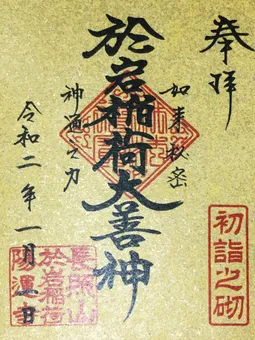 奉拝
如来秘密
於岩稲荷大善神
神通之力
令和二年一月五日
初詣之砌
長照山
於岩稲荷
陽運寺